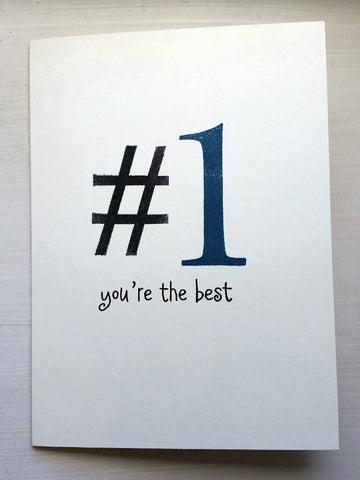 #1
you're the best